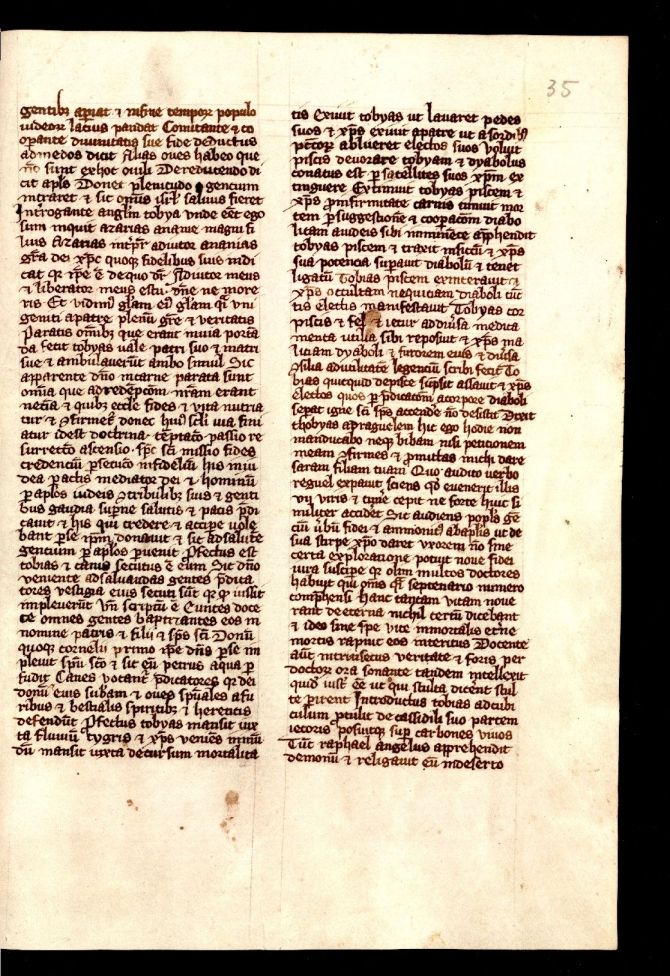 35
gentibȝ apiat ⁊ in fine tempore populo
iudeorꝝ latius pandat Comitante ⁊ co
opante diuinitatis sue fide deductus
ad medos dicit Alias oues habeo que
nō sunt ex hoc ouili De reducendo di
cit apls Donec plenitudo gencium
intraret ⁊ sic omīs isrl saluus fieret
Introgante anglm tobya unde eēt ego
sum inquit azarias ananie magni fi
lius Azarias adiutor ananias
gr̄a dei xp̄c quoqꝫ fidelibus suis indi
cat qꝛ ip̄e ē de quo dr̄ Adiutor meus
⁊ liberator meus estu dn̄e ne more
ris Et vidimꝰ glam eiꝰ glam qͣ vni
geniti a patre plenū gr̄e ⁊ ueritatis
Paratis omībȝ que erant in uia porta
da fecit tobyas uale patri suo ⁊ matri
sue ⁊ ambulauerūt ambo simul Sic
apparente dn̄o in carne parata sunt
omia que ad redēpcōm nr̄am erant
necia ⁊ quibȝ eccle fides ⁊ uita nutria
tur ⁊ donec huiꝰ scli uia fini
atur idest doctrina temptaco passio re
surrecto ascensio sp̄c sci missio fides
credenciū psecuco infideliū his in iu
dea pactis mediator dei ⁊ hominū
p aplos iudeis tribulibȝ suis ⁊ genti
bus gaudia supne salutis ⁊ pacis pdi
cauit ⁊ his qui credere ⁊ accipe uole
bant p se ipm donauit ⁊ sic ad salute
gencium p aplos puenit Pfectus est
tobias ⁊ canis secutus ē eum Sic dn̄o
veniente ad saluandas gentes pdica
tores vestigia eius secuti sūt qꝛ qͦ iussit
impleuerūt Vn̄ scriptū ē Euntes doce
te omnes gentes baptizantes eos in
nomine patris ⁊ filii ⁊ sp̄s sci Domū
quoqꝫ cornelii primo ip̄e dn̄s p se im
pleuit spū sco ⁊ sic eū petrus aqua p
fudit Canes vocant pdicatores qꝛ dei
domū eius subam ⁊ oues spūales a fu
ribus ⁊ bestialis spiritibȝ ⁊ hereticis
defendūt Pfectus tobyas mansit iux
ta fluuiū tygris ⁊ xp̄s veniēs in mū
dū mansit iuxta decursum mortalita
tis Exiuit tobyas ut lauaret pedes
suos ⁊ xp̄s exiuit a patre ut a sordibȝ
pctorꝝ ablueret electos suos Voluit
piscis deuorare tobyam ⁊ dyabolus
conatus est p satellites suos xp̄m ex
tinguere Extimuit tobyas piscem ⁊
xp̄s p infirmitate carnis timuit mor
tem p suggestionē ⁊ coopacōm diabo
licam audeis sibi imminere apphendit
tobyas piscem ⁊ traxit in siccū ⁊ xp̄s
sua potencia supauit diabolū ⁊ tenet
ligatū Tobias piscem exinterauit ⁊
xp̄s occultam nequiciam diaboli cūc
tis electis manifestauit Tobyas cor
piscis ⁊ fel ⁊ iecur ad diuisa medica
menta utilia sibi reposuit ⁊ xp̄s ma
liciam dyaboli ⁊ furorem eius ⁊ diuisa
consilia ad utilitatē legenciū scribi fecit To
bias quicquid de pisce supsit assauit ⁊ xp̄s
electos quos p pdicatom a corpore diaboli
sepat igne sci sp̄s accende nō desistit Dixit
thobyas a praguelem hic ego hodie non
manducabo neqꝫ bibam nisi peticionem
meam cōfirmes ⁊ pmittas michi dare
saram filiam tuam Quo audito verbo
reguel expauit sciens qͦ euenerit illis
vij viris ⁊ timere cepit ne forte huic si
militer accidet Sic audiens poplꝰ gē
ciū ubū fidei ⁊ ammonitꝰ ab aplis ut de
sua stirpe xp̄o daret vxorem nō sine
certa exploracione potuit noue fidei
iura suscipe qꝛ olim multos doctores
habuit qui om̄s qͣ septenario numero
comphensi hanc tantam vitam noue
rant de eterna nichil certū dicebant
⁊ ideo sine spe vite immortalis etne
mortis rapuit eos interitus Docente
aūt intrinsecus veritate ⁊ foris per
doctorꝝ ora sonante tandem intellexit
quid iuscē eē ut qui stulta dicent stul
te pirent Introductus tobias ad cubi
culum ptulit de cassidili suo partem
iecoris posuitqꝫ sup carbones viuos
Tūc raphael angelus apprehendit
demoniū ⁊ religauit eū in deserto